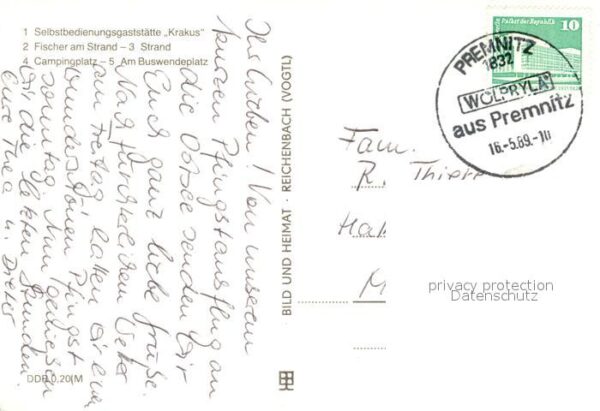 1 Selbstbedienungsgaststätte „Krakus"
2 Fischer am Strand – 3 Strand
4 Campingplatz – 5 Am Buswendeplatz
Ihr Lieben! Von unserem
kurzen Pfingstausflug an
die Ostsee senden wir
Euch ganz liebe Grüße.
Nach furchtbarem Wetter
am Freitag hatten wir einen
wunderschönen Pfingst
sonntag. Nun genießen
wir die letzten Stunden.
Eure Thea u. Dieter
DDR 0,20 M
BILD UND HEIMAT · REICHENBACH (VOGTL)
Palast der Republik 10
PREMNITZ
1832
WOLPRYLA
aus Premnitz
16.-5.89.-10
Fam.
R.
privacy protection
Datenschutz